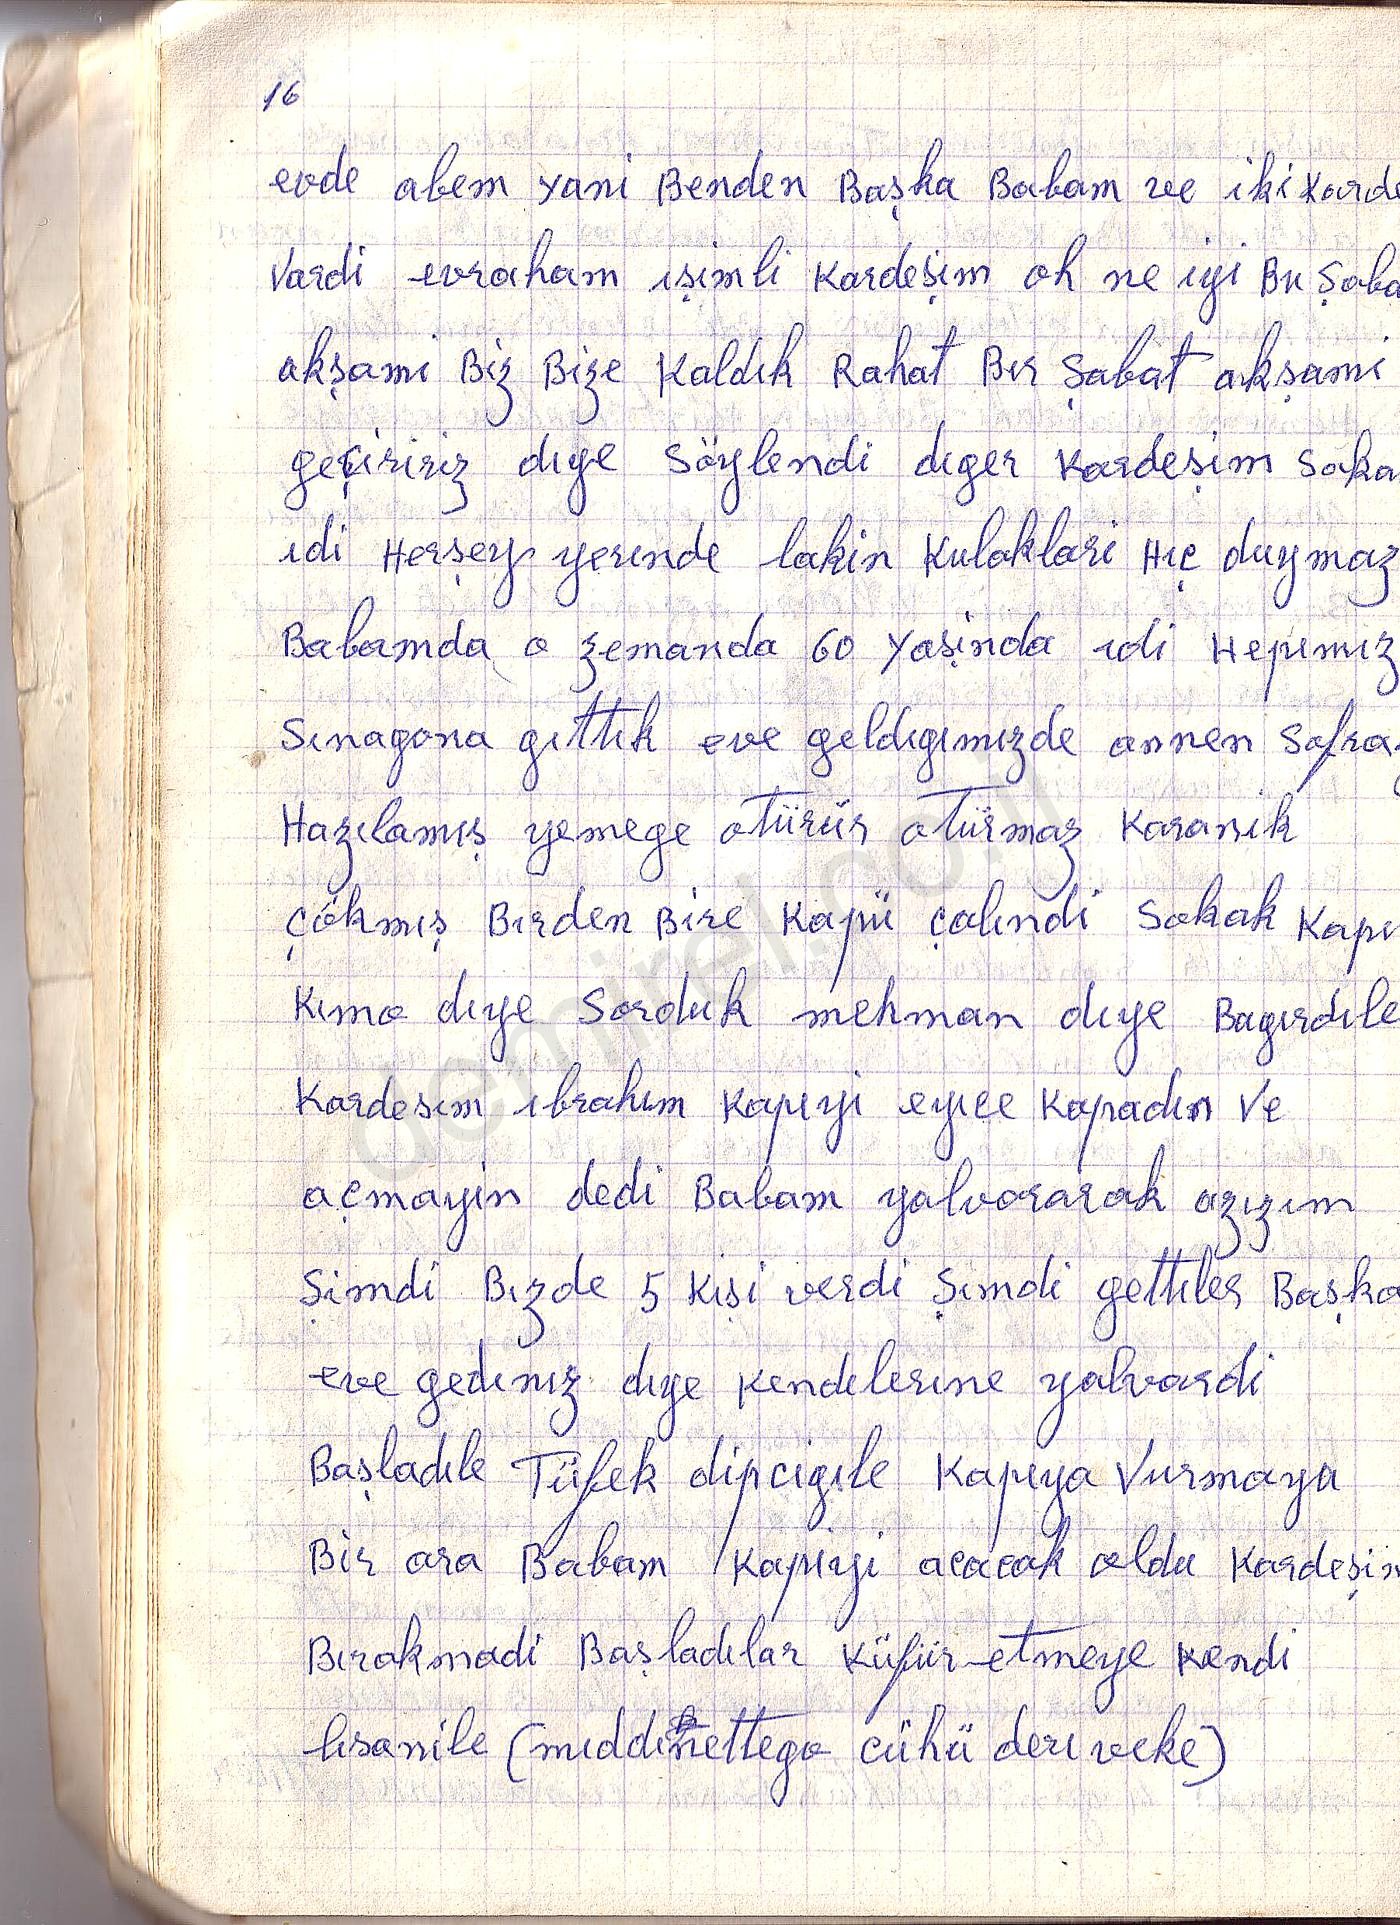 16
evde abem yani Benden Başka Babam ve iki Karde
Vardi evraham işimli Kardeşim oh ne iyi Bu Şaba
akşami Biz Bize Kaldık Rahat Bır Şabat akşami
geçiririz dıye Söylendi dıger Kardeşim Saka
ıdi Herşey yerınde lakin Kulaklari Hıç duymaz
Babamda o zemanda 60 Yaşinda ıdi Hepımız
Sınagona gıttık eve geldıgımızde annen Sofra
Hazılamış yemege otürür otürmaz Karanık
çökmış Bırden Bire Kapü çalındi Sokak Kapı
Kımo dıye Sorduk mehman dıye Bagırdıle
Kardesım ıbrahım Kapıyi eyıce Kapadın Ve
açmayin dedi Babam yalvorarak azızım
Şimdi Bızde 5 Kişi verdi Şımdi gettıler Başka
eve gedınız dıye Kendılerıne yalvardi
Başladıle Tüfek dipcigıle Kapıya Vurmaya
Bir ara Babam Kapıyi acacak oldu Kardeşim
Bırakmadi Başladılar Küfür etmeye Kendi
lısanile ( cühü derı veke)
demirel.co.il